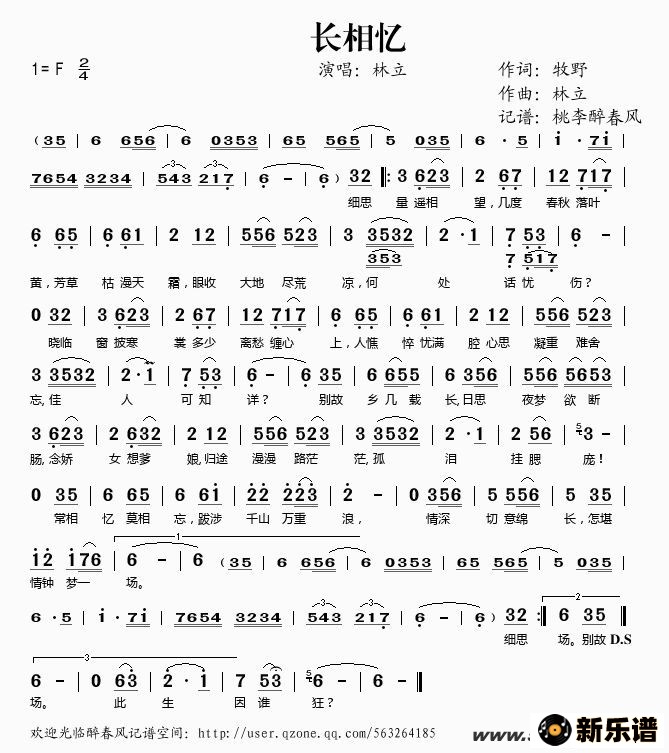 长相忆
1=F 2/4
演唱：林立
作词：牧野
作曲：林立
记谱：桃李醉春风
(35 | 6 656 | 6 0353 | 65 565 | 5 035 | 6 · 5 | i · 7i |
7654 3234 | 543 217 | 6 - | 6) 32 |: 3 623 | 2 67 | 12 717 |
细思 量遥相 望，几度 春秋落叶
6 65 | 6 61 | 2 12 | 556 523 | 3 3532 | 2 · 1 | 7 53 | 6 - |
353 7 517
黄，芳草 枯漫天 霜，眼收 大地 尽荒 凉，何 处 话忧 伤？
0 32 | 3 623 | 2 67 | 12 717 | 6 65 | 6 61 | 2 12 | 556 523 |
晓临 窗披寒 裳多少 离愁缠心 上，人憔 悴忧满 腔心思 凝重 难舍
3 3532 | 2 · 1 | 7 53 | 6 - | 6 35 | 6 655 | 6 356 | 556 5653 |
忘，佳 人 可知 详？ 别故 乡几载 长，日思 夜梦 欲断
3 623 | 2 632 | 2 12 | 556 523 | 3 3532 | 2 · 1 | 2 56 | 5 3 - |
肠，念娇 女想爹 娘，归途 漫漫 路茫 茫，孤 泪 挂腮 庞！
0 35 | 6 35 | 6 6i | 22 223 | 2 - | 0356 | 556 356 | 5 35 |
常相 忆莫相 忘，跋涉 千山万重 浪， 情深 切意绵 长，怎堪
i2 i76 | 1 6 - | 6 (35 | 6 656 | 6 0353 | 65 565 | 5 035 |
情钟 梦一 场。
6 · 5 | i · 7i | 7654 3234 | 543 217 | 6 - | 6) 32 :| 2 6 35 ||
细思 场。别故 D.S
3 6 - | 0 63 | 2 · 1 | 7 53 | 5 6 - | 6 - ||
场。 此 生 因谁 狂？
欢迎光临醉春风记谱空间：http://user.qzone.qq.com/563264185
www.
新乐谱